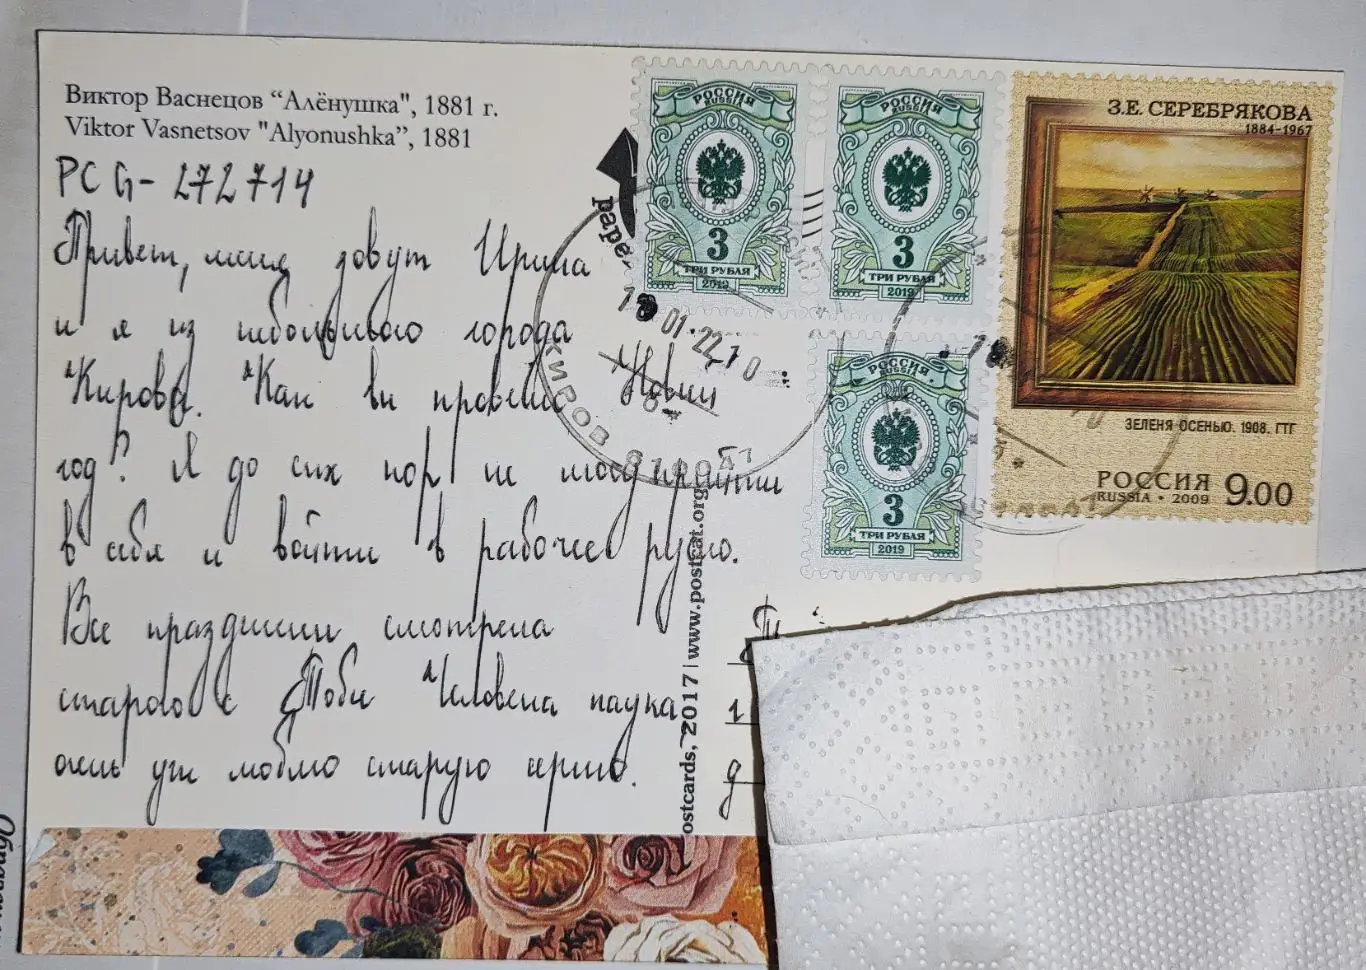 Виктор Васнецов “Алёнушка", 1881 г.
Viktor Vasnetsov "Alyonushka”, 1881
PC G- 272714
Привет, меня зовут Ирина
и я из небольшого города
Кирова. Как вы провели Новый
год? Я до сих пор не могу прийти
в себя и войти в рабочее русло.
Все праздники смотрела
старого с Тоби Человека паука
очень уж люблю старую серию.
РОССИЯ
RUSSIA
3
ТРИ РУБЛЯ
2019
РОССИЯ
RUSSIA
3
ТРИ РУБЛЯ
2019
РОССИЯ
3
ТРИ РУБЛЯ
2019
З.Е. СЕРЕБРЯКОВА
1884-1967
ЗЕЛЕНЯ ОСЕНЬЮ. 1908. ГТГ
РОССИЯ
RUSSIA • 2009
9.00
01.22
КИРОВ
ostcards, 2017 | www.postcat.org